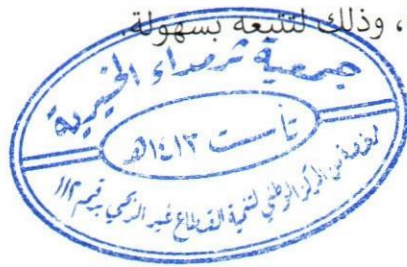 ، وذلك لتتبعه بسهولة.
جمعية ثرمداء الخيرية
تأسست ١٤١٣هـ
مرخصة من المركز الوطني لتنمية القطاع غير الربحي برقم ١١٢